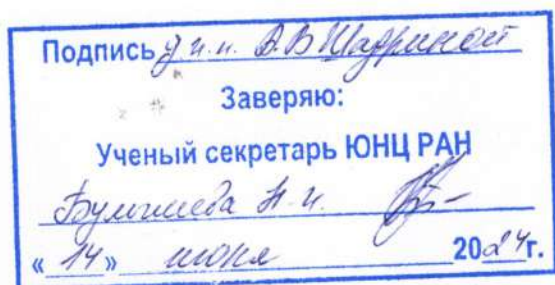 Подпись д.и.н. А.В Шадриной
Заверяю:
Ученый секретарь ЮНЦ РАН
Булышева Н.И.
«14» июня 2024г.